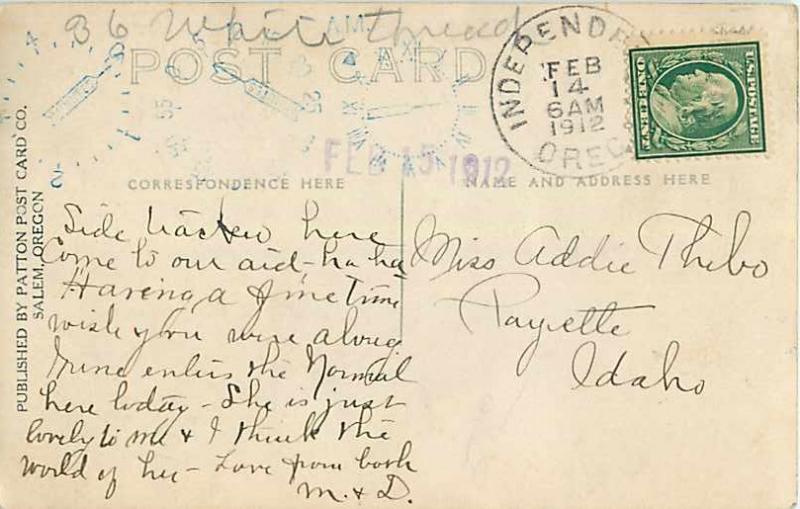 36 White thread
POST CARD
INDEPENDE
FEB
14
6AM
1912
OREG.
U.S. POSTAGE
FEB 15 1912
CORRESPONDENCE HERE
NAME AND ADDRESS HERE
PUBLISHED BY PATTON POST CARD CO.
SALEM, OREGON
Side tracked here
Come to our aid - ha ha
Having a fine time
wish you were along
enters the Normal
here today - She is just
lovely to me & I think the
world of her - Love from both
M. & D.
Miss Addie Thebo
Payette
Idaho